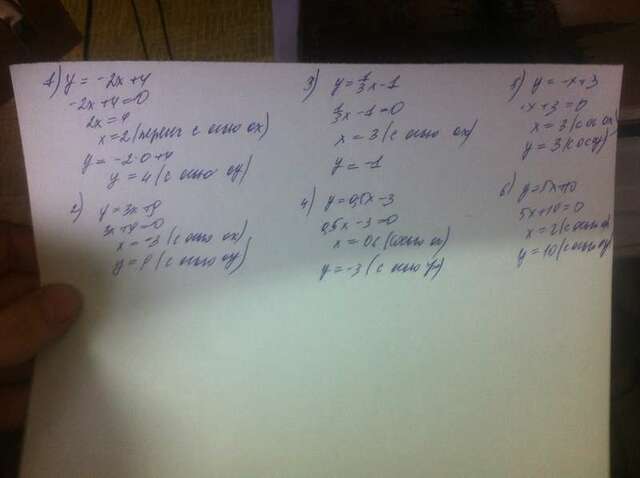 1) y = -2x+4
-2x+4=0
2x=4
x=2 (перинг с осью ox)
y=-2·0+4
y=4 (с осью oy)
2) y=3x+9
3x+9=0
x=-3 (с осью ox)
y=9 (с осью oy)
3) y=1/3x-1
1/3x-1=0
x=3 (с осью ox)
y=-1
4) y=0,5x-3
0,5x-3=0
x= (осью ox)
y=-3 (с осью y)
5) y=-x+3
-x+3=0
x=3 (с ox)
y=3 (осу)
6) y=5x+10
5x+10=0
x=2 (с осью ox)
y=10 (с осью oy)